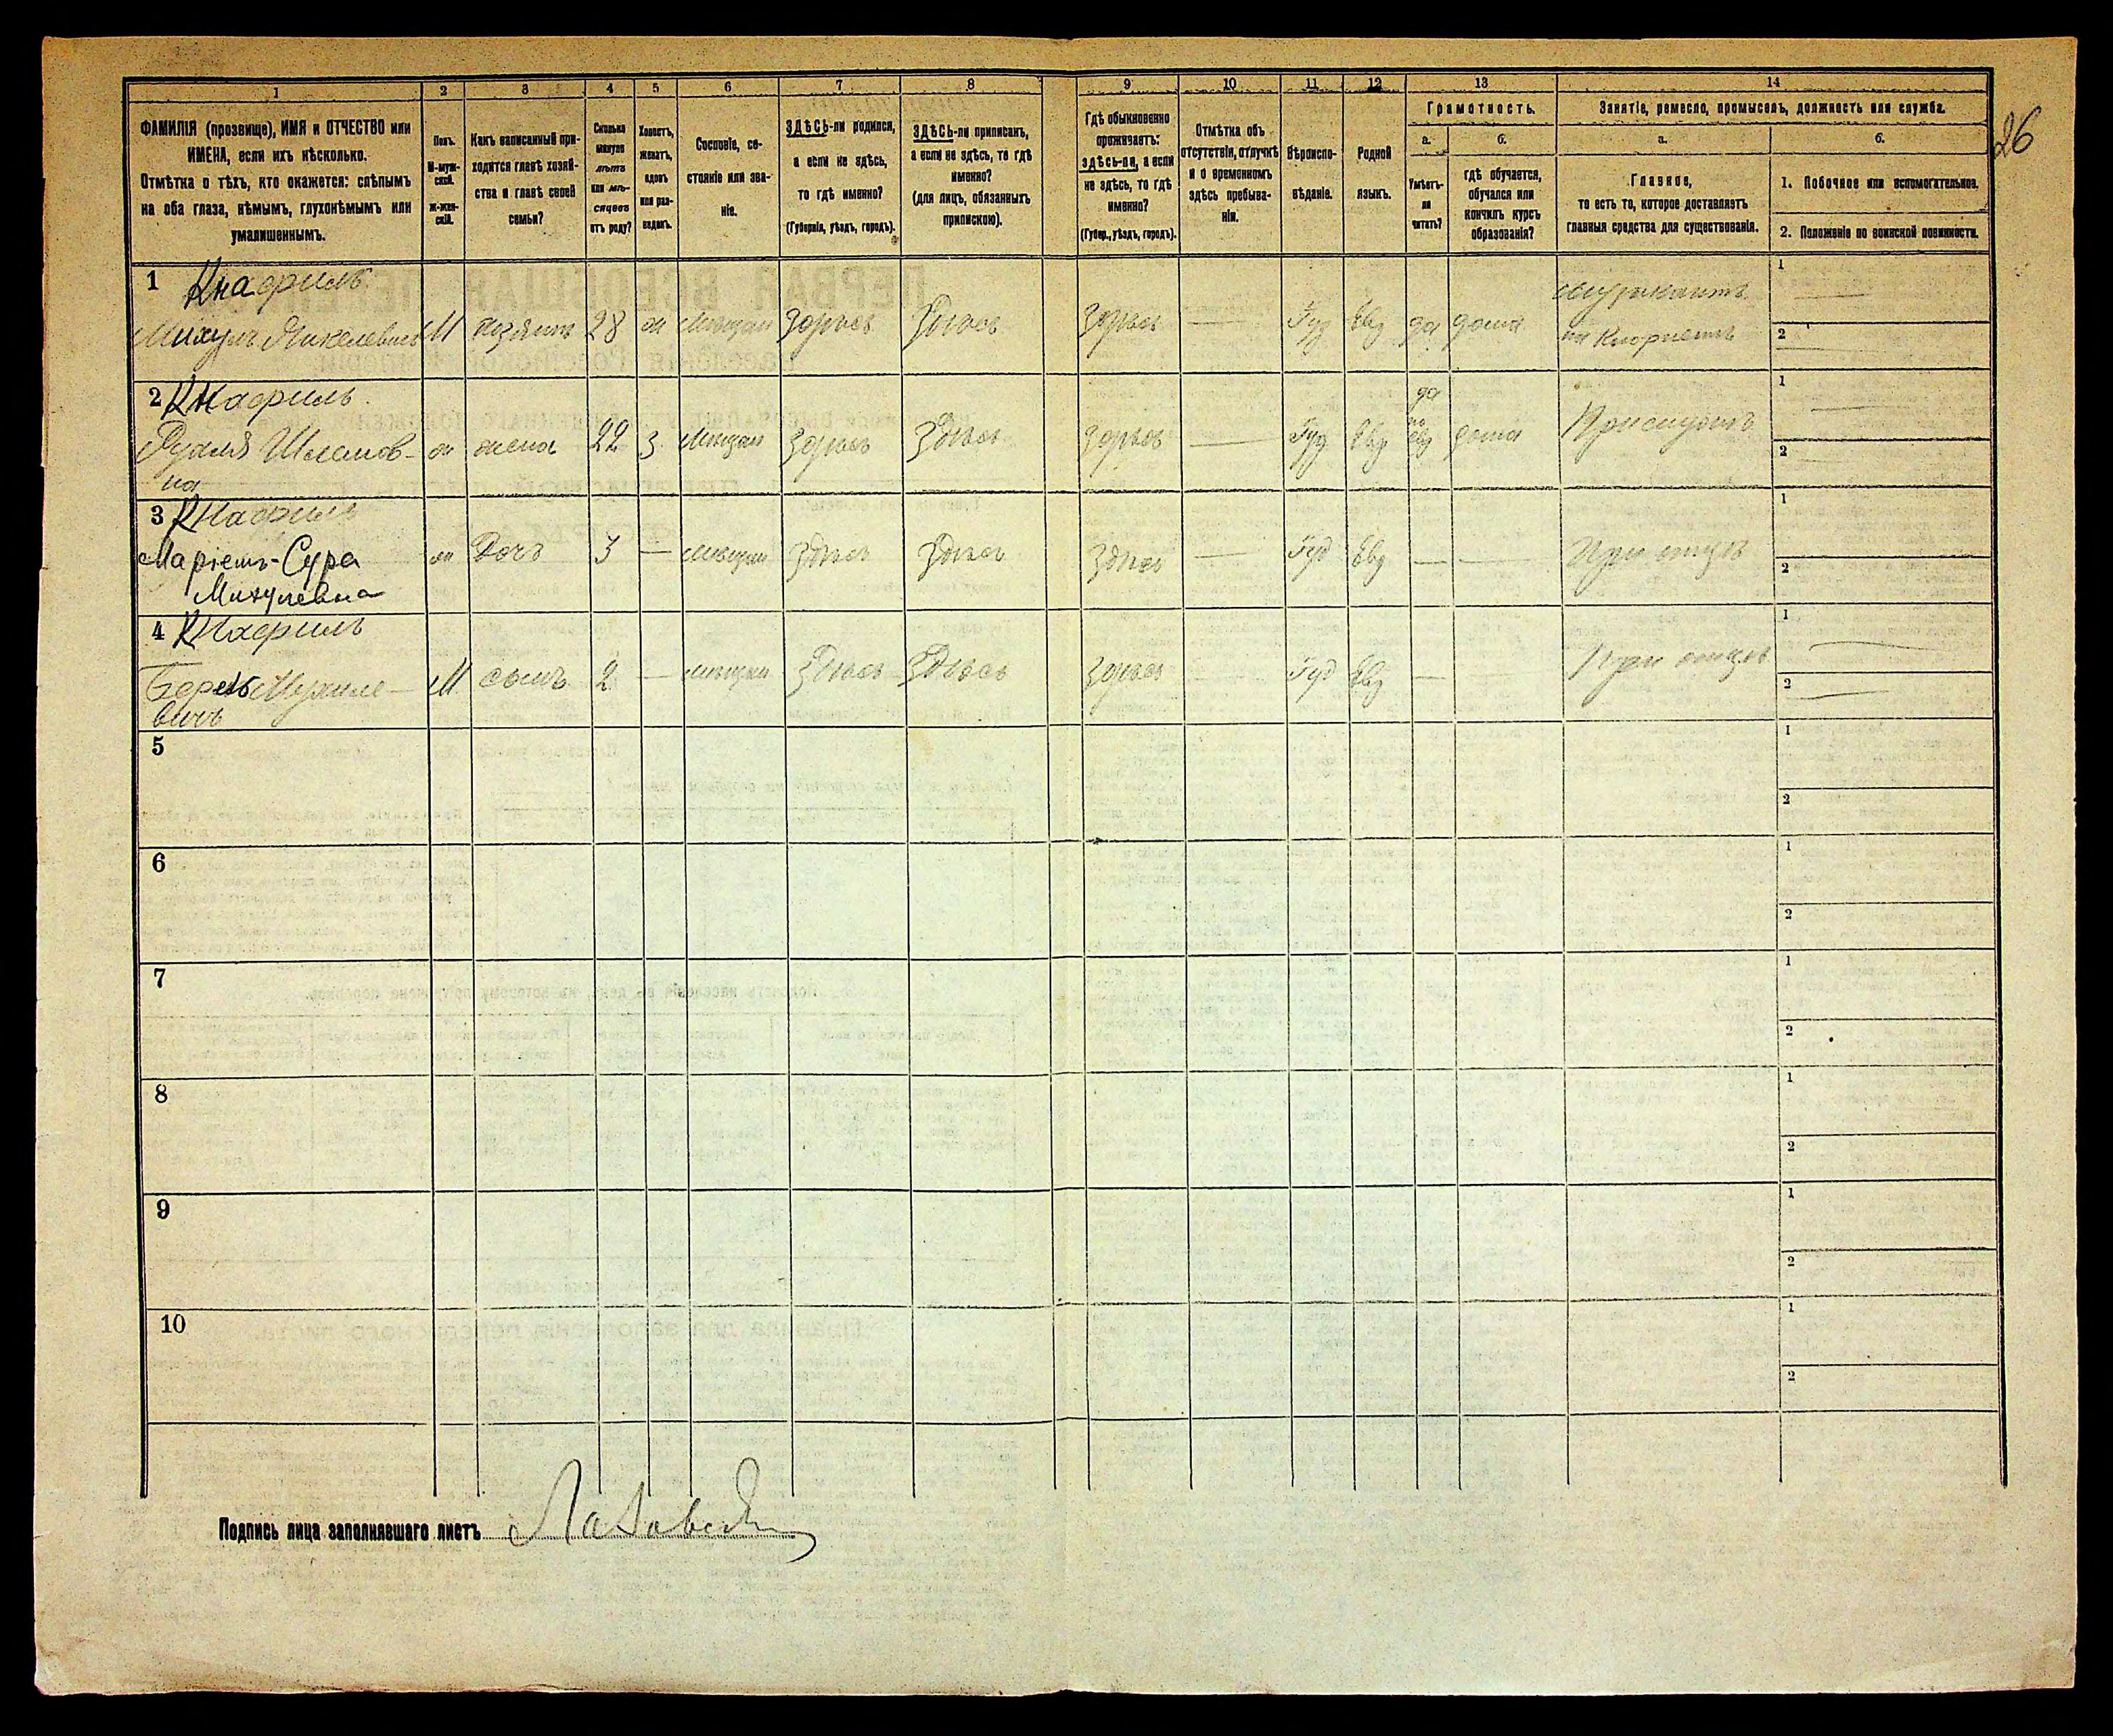 1 2 3 4 5 6 7 8 9 10 11 12 13 14
ФАМИЛІЯ (прозвище), ИМЯ и ОТЧЕСТВО или
ИМЕНА, если ихъ нѣсколько.
Отмѣтка о тѣхъ, кто окажется: слѣпымъ
на оба глаза, нѣмымъ, глухонѣмымъ или
умалишеннымъ.
Полъ.
М-муж-
ской.
ж-жен-
скій.
Какъ записанный при-
ходится главѣ хозяй-
ства и главѣ своей
семьи?
Сколько
минуло
лѣтъ
или мѣ-
сяцевъ
отъ роду?
Холостъ,
женатъ,
вдовъ
или раз-
веденъ.
Сословіе, со-
стояніе или зва-
ніе.
ЗДѢСЬ-ли родился,
а если не здѣсь,
то гдѣ именно?
(Губернія, уѣздъ, городъ).
ЗДѢСЬ-ли приписанъ,
а если не здѣсь, то гдѣ
именно?
(для лицъ, обязанныхъ
припискою).
Гдѣ обыкновенно
проживаетъ:
здѣсь-ли, а если
не здѣсь, то гдѣ
именно?
(Губер., уѣздъ, городъ).
Отмѣтка объ
отсутствіи, отлучкѣ
и о временномъ
здѣсь пребыва-
ніи.
Вѣроиспо-
вѣданіе.
Родной
языкъ.
Грамотность.
а.
Умѣетъ-
ли
читать?
б.
гдѣ обучается,
обучался или
кончилъ курсъ
образованія?
Занятіе, ремесло, промыселъ, должность или служба.
а.
Главное,
то есть то, которое доставляетъ
главныя средства для существованія.
б.
1. Побочное или вспомогательное.
2. Положеніе по воинской повинности.
26
1 Кнафиль
Михуль М хозяинъ 28 ж мѣщан здѣсь Здѣсь здѣсь — Іуд Евр да дома
музыкантъ
на Кларнетѣ
1 —
2 —
2 Кнафиль
Рухля Шлемов-
на
ж жена 22 З мѣщан здѣсь Здѣсь здѣсь — Іуд Евр
да
по
евр
дома
1 —
2 —
3 Кнафиль
Маріемъ-Сура
Михулевна
ж Дочь 3 — мѣщан Здѣсь Здѣсь Здѣсь — Іуд Евр — — При отцѣ
1
2 —
4 Кнафиль
Михуле-
вичъ
М сынъ 2 — мѣщан Здѣсь Здѣсь здѣсь — Іуд Евр — — При отцѣ
1 —
2 —
5
1
2
6
1
2
7
1
2
8
1
2
9
1
2
10
1
2
Подпись лица заполнявшаго листъ